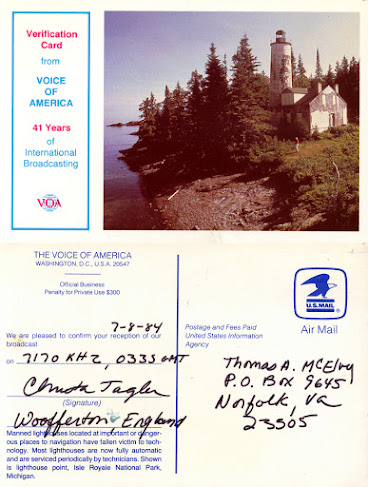 Verification
Card
from
VOICE
OF
AMERICA
41 Years
of
International
Broadcasting
VOA
THE VOICE OF AMERICA
WASHINGTON, D.C., U.S.A. 20547
Official Business
Penalty for Private Use $300
7-8-84
We are pleased to confirm your reception of our
broadcast
on 7170 KHZ, 0335 GMT
(Signature)
Woofferton, England
Manned lighthouses located at important or danger-
ous places to navigation have fallen victim to tech-
nology. Most lighthouses are now fully automatic
and are serviced periodically by technicians. Shown
is lighthouse point, Isle Royale National Park,
Michigan.
Postage and Fees Paid
United States Information
Agency
U.S.MAIL
Air Mail
Thomas A. McElvy
P.O. Box 9645
Norfolk, Va
23505